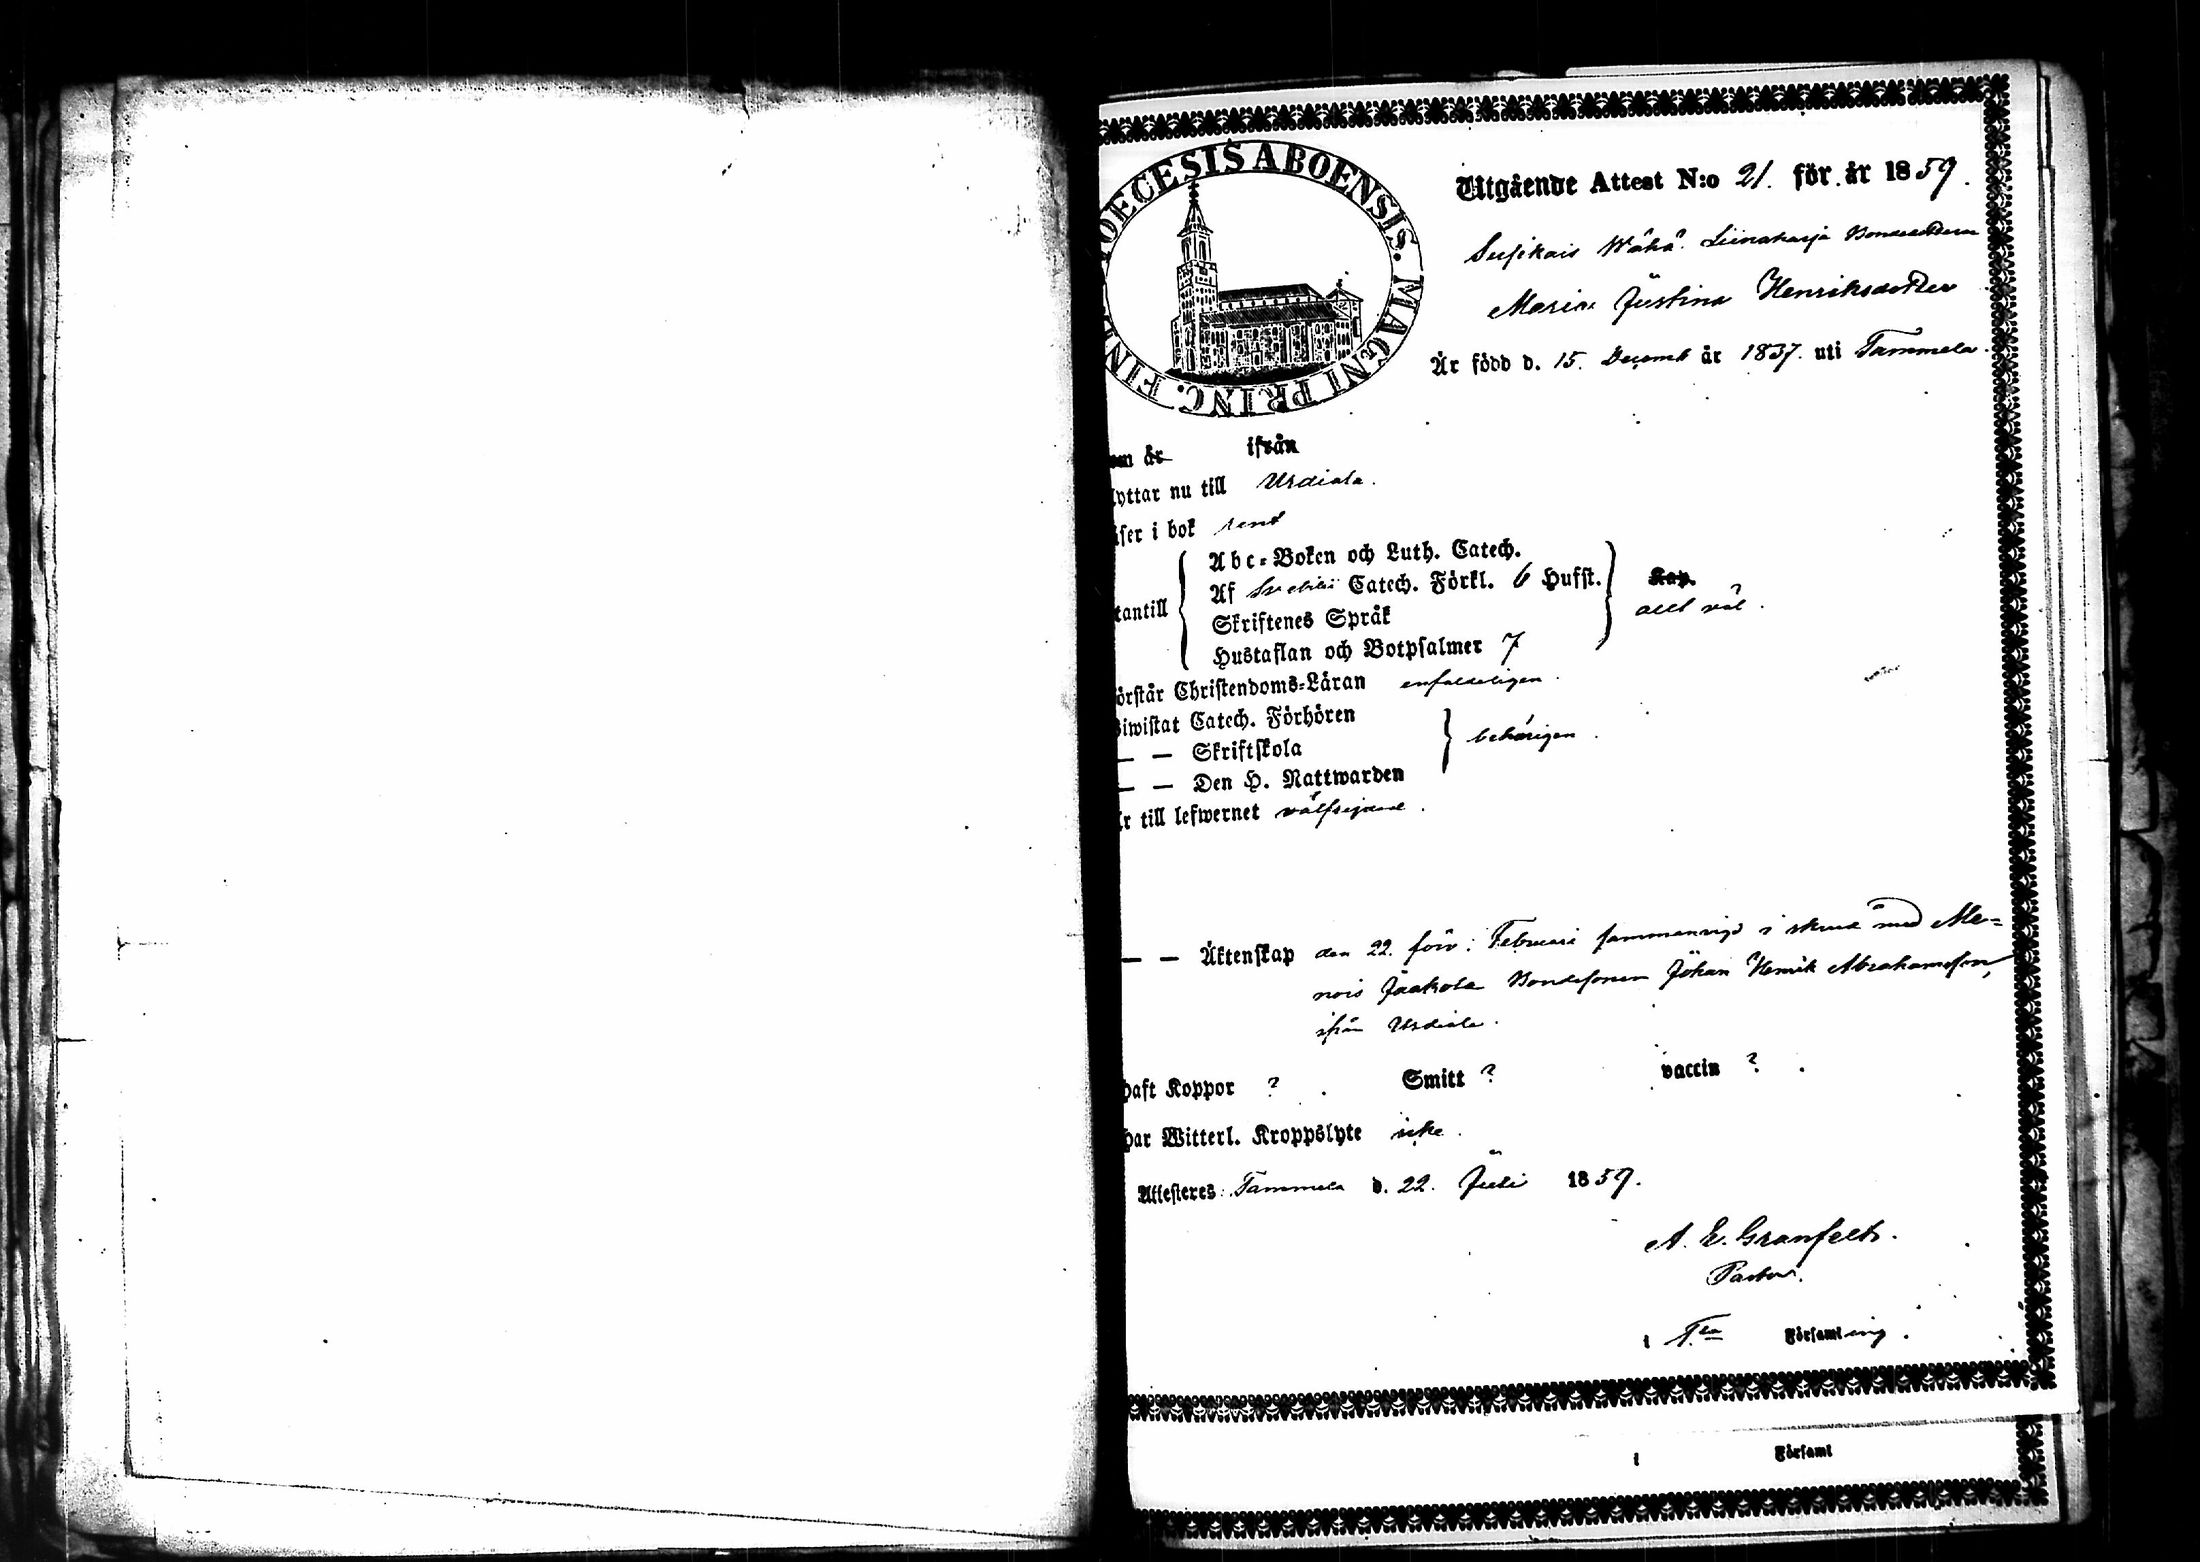 OECESIS ABOENSIS. MAGNI PRINC. FINL
Utgående Attest N:o 21. för år 1859.
Susikais Wähä Liinaharja Bondedottern
Maria Justina Henriksdotter
Är född d. 15. Decemb år 1837. uti Tammela.
om är ifrån
lyttar nu till Urdiala.
äser i bok rent
Abc-Boken och Luth. Catech.
Af Svebilii Catech. Förkl. 6 Hufst. Kap.
tantill allt väl.
Skriftenes Språk
Hustaflan och Botpsalmer 7
örstår Christendoms-Läran enfaldeligen.
Biwistat Catech. Förhören
— — Skriftskola behörigen.
— — Den H. Nattwarden
r till lefwernet välfrejdad.
— — Äktenskap den 22. Februari sammanvigd i skrud med Me-
nois Jaakola Bondesonen Johan Henrik Abrahamsson,
ifrån Urdiala.
haft Koppor ? Smitt ? vaccin ?
har Witterl. Kroppslyte icke.
Attesteres Tammela d. 22. Juli 1859.
A. E. Granfelt.
Pastor.
i T:la Församling.
i Församl